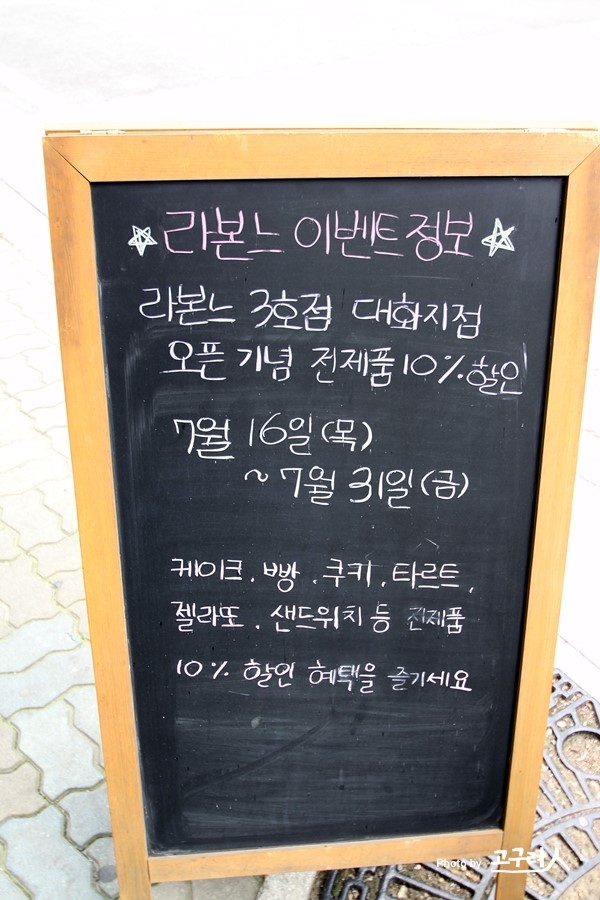 ☆라본느 이벤트정보☆
라본느 3호점 대화지점
오픈 기념 전제품 10% 할인
7월 16일(목)
~ 7월 31일(금)
케이크. 빵. 쿠키. 타르트.
젤라또. 샌드위치 등 전제품
10% 할인 혜택을 즐기세요
Photo by 고구려人